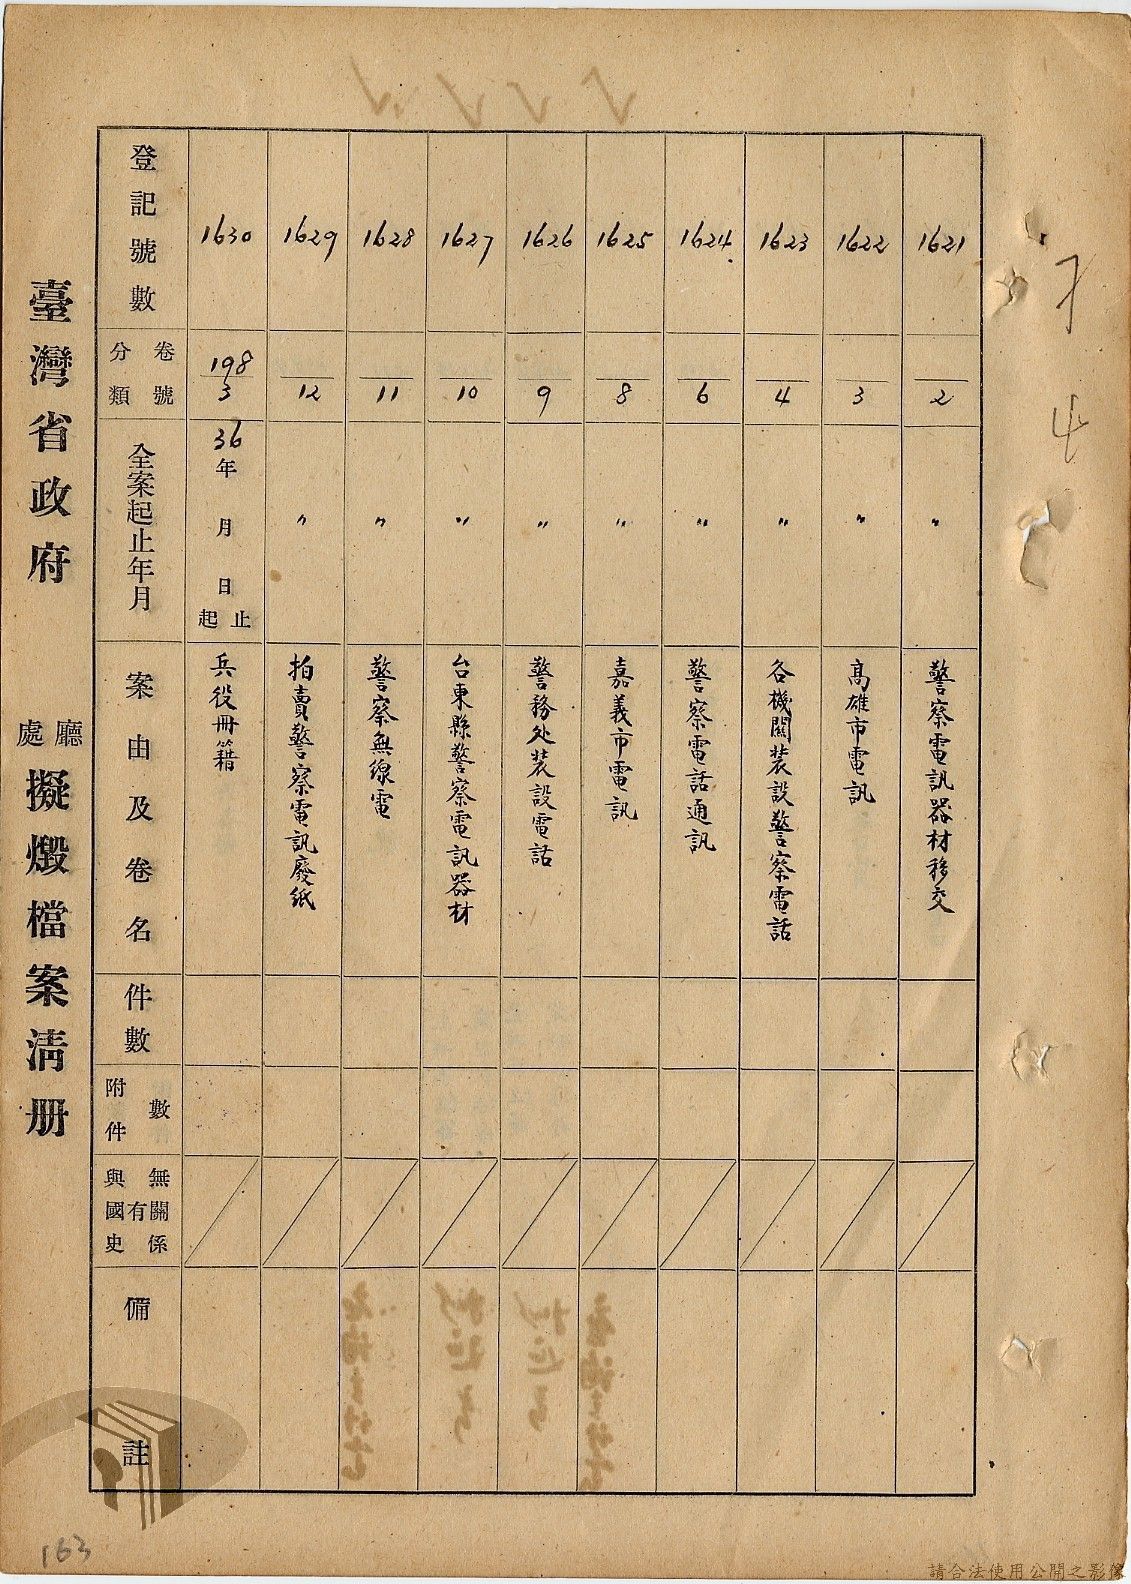 臺灣省政府 處廳 擬燬檔案清册
登記號數
卷號 分類
全案起止年月
案由及卷名
件數
附件數
與國史有無關係
備註
1630 198/3 36年 月 日 起止 兵役冊籍
1629 12 〃 拍賣警察電訊廢紙
1628 11 〃 警察無線電
1627 10 〃 台東縣警察電訊器材
1626 9 〃 警務处装設電話
1625 8 〃 嘉義市電訊
1624 6 〃 警察電話通訊
1623 4 〃 各機關装設警察電話
1622 3 〃 高雄市電訊
1621 2 〃 警察電訊器材移交
163
請合法使用公開之影像